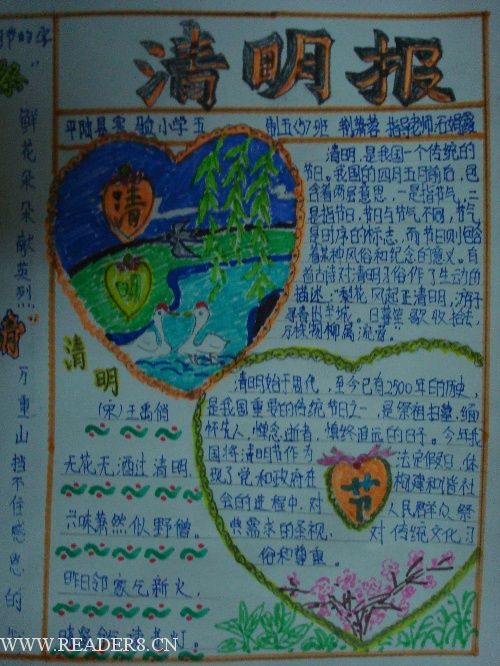 清明报
平陆县实验小学五
制五〈5〉班
指导老师:石娟霞
鲜花朵朵献英烈
万重山挡不住感恩的
清
明
清明,是我国一个传统的
节日。我国的四月五日前后,包
含着两层意思,一是指节气,二
是指节日,节日与节气不同,节气
是时序的标志,而节日则包含
着某种风俗和纪念的意义。自
古古诗对清明习俗作了生动的
描述:“梨花风起正清明,游子
寻春半出城。日暮笙歌收拾去,
万株杨柳属流莺。”
清明
(宋)王禹偁
无花无酒过清明,
兴味萧然似野僧。
昨日邻家乞新火,
清明始于周代,至今已有2500年的历史,
是我国重要的传统节日之一,是祭祖扫墓,缅
怀先人,悼念逝者,慎终追远的日子。今年我
国将清明节作为法定假日,体
现了党和政府在构建和谐社
会的进程中,对人民群众祭
典需求的重视,对传统文化了
俗和尊重。
节
WWW.READER8.CN